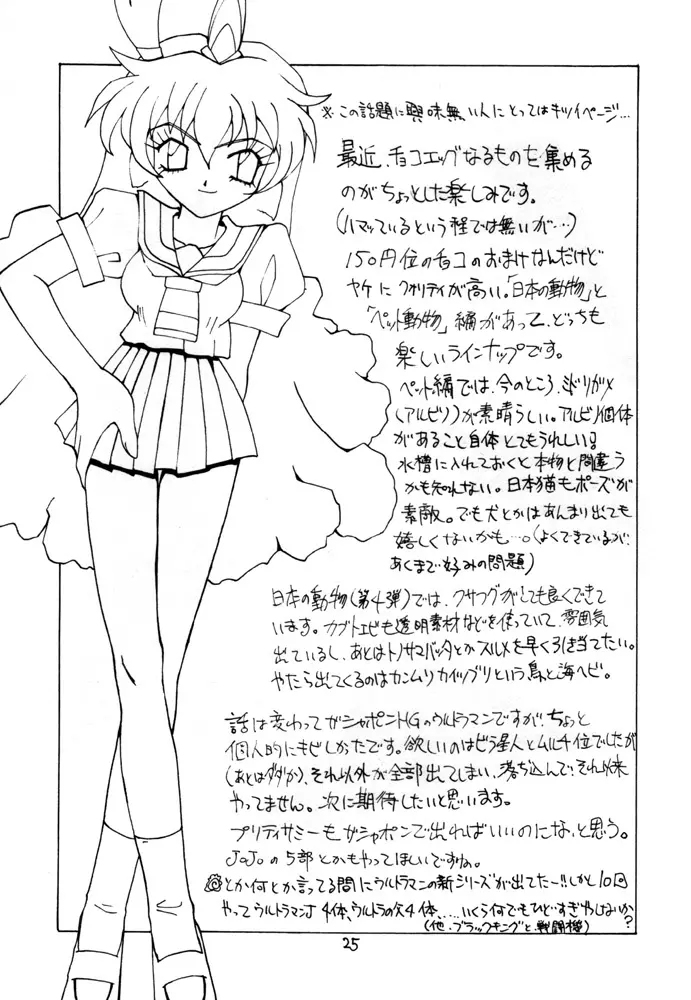 ※この話題に興味無い人にとってはキツイページ…
最近、チョコエッグなるものを集める
のがちょっとした楽しみです。
(ハマッているという程では無いが…)
150円位のチョコのおまけなんだけど
ヤケにクォリティが高い。「日本の動物」と
「ペット動物」編があって、どっちも
楽しいラインナップです。
ペット編では、今のところ、ミドリガメ
(アルビノ)が素晴らしい。アルビノ個体
があること自体とてもうれしい!
水槽に入れておくと本物と間違う
かも知れない。日本猫もポーズが
素敵。でも犬とかはあんまり出ても
嬉しくないかも…。(よくできているが、
あくまで好みの問題)
日本の動物(第4弾)では、クサフグがとても良くできて
います。カブトエビも透明素材などを使っていて、雰囲気
出ているし、あとはトノサマバッタとかスルメを早く引き当てたい。
やたら出てくるのはカンムリカイツブリという鳥と海ヘビ。
話は変わってガシャポンHGのウルトラマンですが、ちょっと
個人的にキビしかったです。欲しいのはビラ星人とムルチ位でしたが
(あとはダダか)、それ以外が全部出てしまい、落ち込んで、それ以来
やってません。次に期待したいと思います。
プリティサミーもガシャポンで出ればいいのになぁと思う。
JoJoの5部とかもやってほしいですね。
とか何とか言ってる間にウルトラマンの新シリーズが出てたー!!しかし10回
やってウルトラマンJ 4体、ウルトラの父4体、....いくら何でもひどすぎやしないか?
(他、ブラックキングと、戦闘機)
25